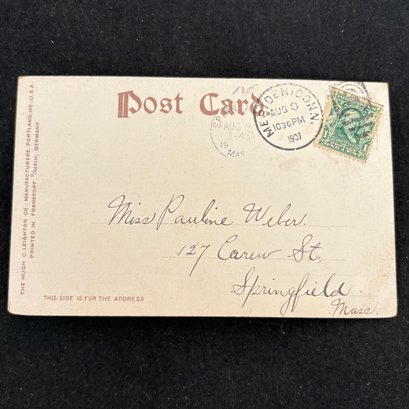 Post Card
MERIDEN, CONN.
AUG 8
1030PM
1907
AUG 9
19
Miss Pauline Weber.
127 Carew St.
Springfield
Mass.
THIS SIDE IS FOR THE ADDRESS
THE HUGH C. LEIGHTON CO., MANUFACTURERS, PORTLAND, ME., U.S.A.
PRINTED IN FRANKFORT O/MAIN, GERMANY.